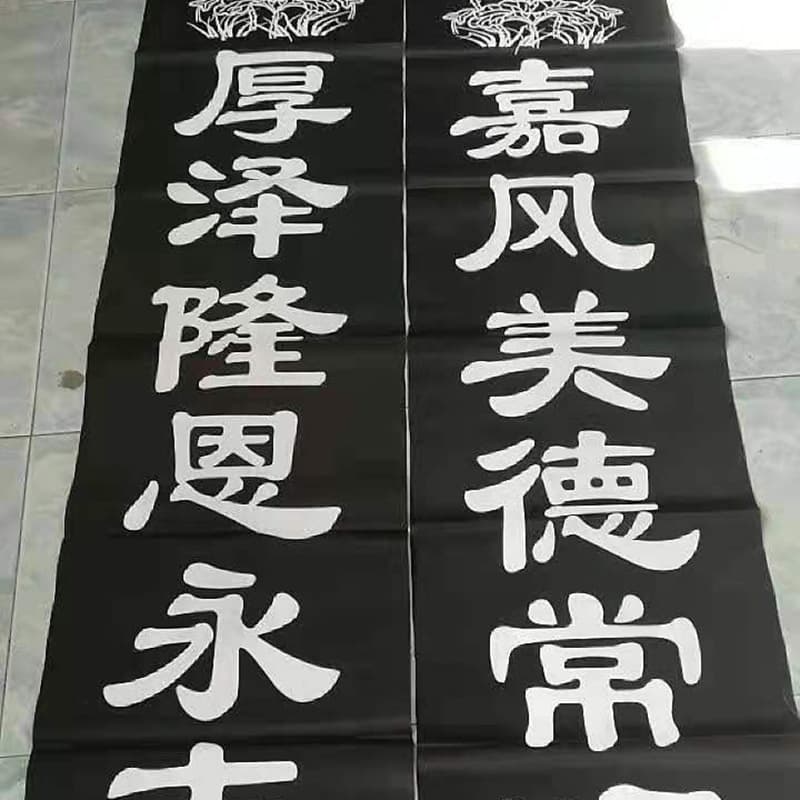 嘉风美德常
厚泽隆恩永